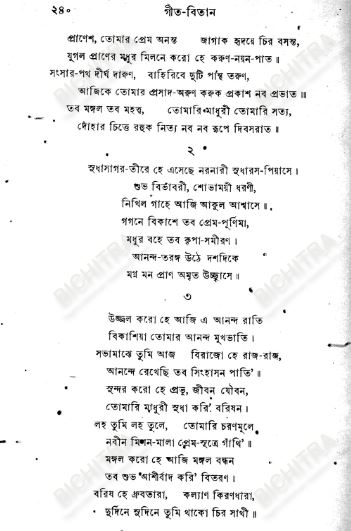 ২৪০ গীত-বিতান
প্রাণেশ, তোমার প্রেম অনন্ত জাগাক হৃদয়ে চির বসন্ত,
যুগল প্রাণের মধুর মিলনে করো হে করুণ-নয়ন-পাত॥
সংসার-পথ দীর্ঘ দারুণ, বাহিরিবে দুটি পান্থ তরুণ,
আজিকে তোমার প্রসাদ-অরুণ করুক প্রকাশ নব প্রভাত॥
তব মঙ্গল তব মহত্ত্ব, তোমারি মাধুরী তোমারি সত্য,
দোঁহার চিত্তে রহুক নিত্য নব নব রূপে দিবসরাত॥
২
সুধাসাগর-তীরে হে এসেছে নরনারী সুধারস-পিয়াসে।
শুভ বিভাবরী, শোভাময়ী ধরণী,
নিখিল গাহে আজি আকুল আশ্বাসে॥
গগনে বিকাশে তব প্রেম-পূর্ণিমা,
মধুর বহে তব কৃপা-সমীরণ।
আনন্দ-তরঙ্গ উঠে দশদিকে
মগ্ন মন প্রাণ অমৃত উচ্ছ্বাসে॥
৩
উজ্জ্বল করো হে আজি এ আনন্দ রাতি
বিকাশিয়া তোমার আনন্দ মুখভাতি।
সভামাঝে তুমি আজ বিরাজো হে রাজ-রাজ,
আনন্দে রেখেছি তব সিংহাসন পাতি'॥
সুন্দর করো হে প্রভু, জীবন যৌবন,
তোমারি মাধুরী সুধা করি' বরিষন।
লহ তুমি লহ তুলে, তোমারি চরণমূলে
নবীন মিলন-মালা প্রেম-সূত্রে গাঁথি'॥
মঙ্গল করো হে আজি মঙ্গল বন্ধন
তব শুভ আশীর্বাদ করি' বিতরণ।
বরিষ হে ধ্রুবতারা, কল্যাণ কিরণধারা,
দুর্দিনে সুদিনে তুমি থাকো চির সাথী॥
BICHITRA